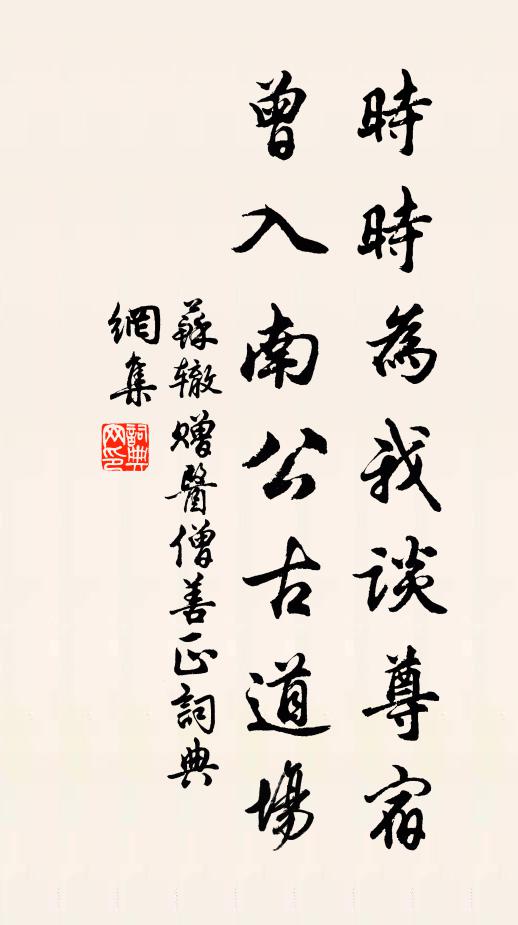 時時為我談尊宿
曾入南公古道場
蘇辙贈醫僧善正詞典
網集
詞典
网印